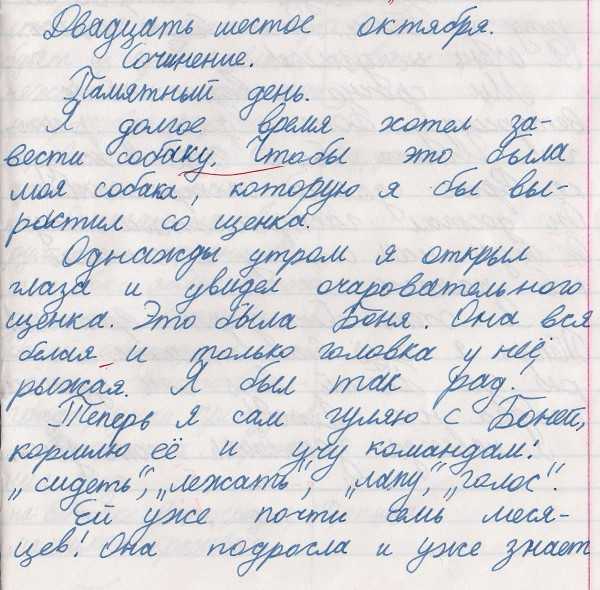 Двадцать шестое октября.
Сочинение.
Памятный день.
Я долгое время хотел за-
вести собаку. Чтобы это была
моя собака, которую я бы вы-
растил со щенка.
Однажды утром я открыл
глаза и увидел очаровательного
щенка. Это была Боня. Она вся
белая и только головка у неё
рыжая. Я был так рад.
Теперь я сам гуляю с Боней,
кормлю её и учу командам:
„сидеть", „лежать", „лапу", „голос".
Ей уже почти семь меся-
цев! Она подросла и уже знает